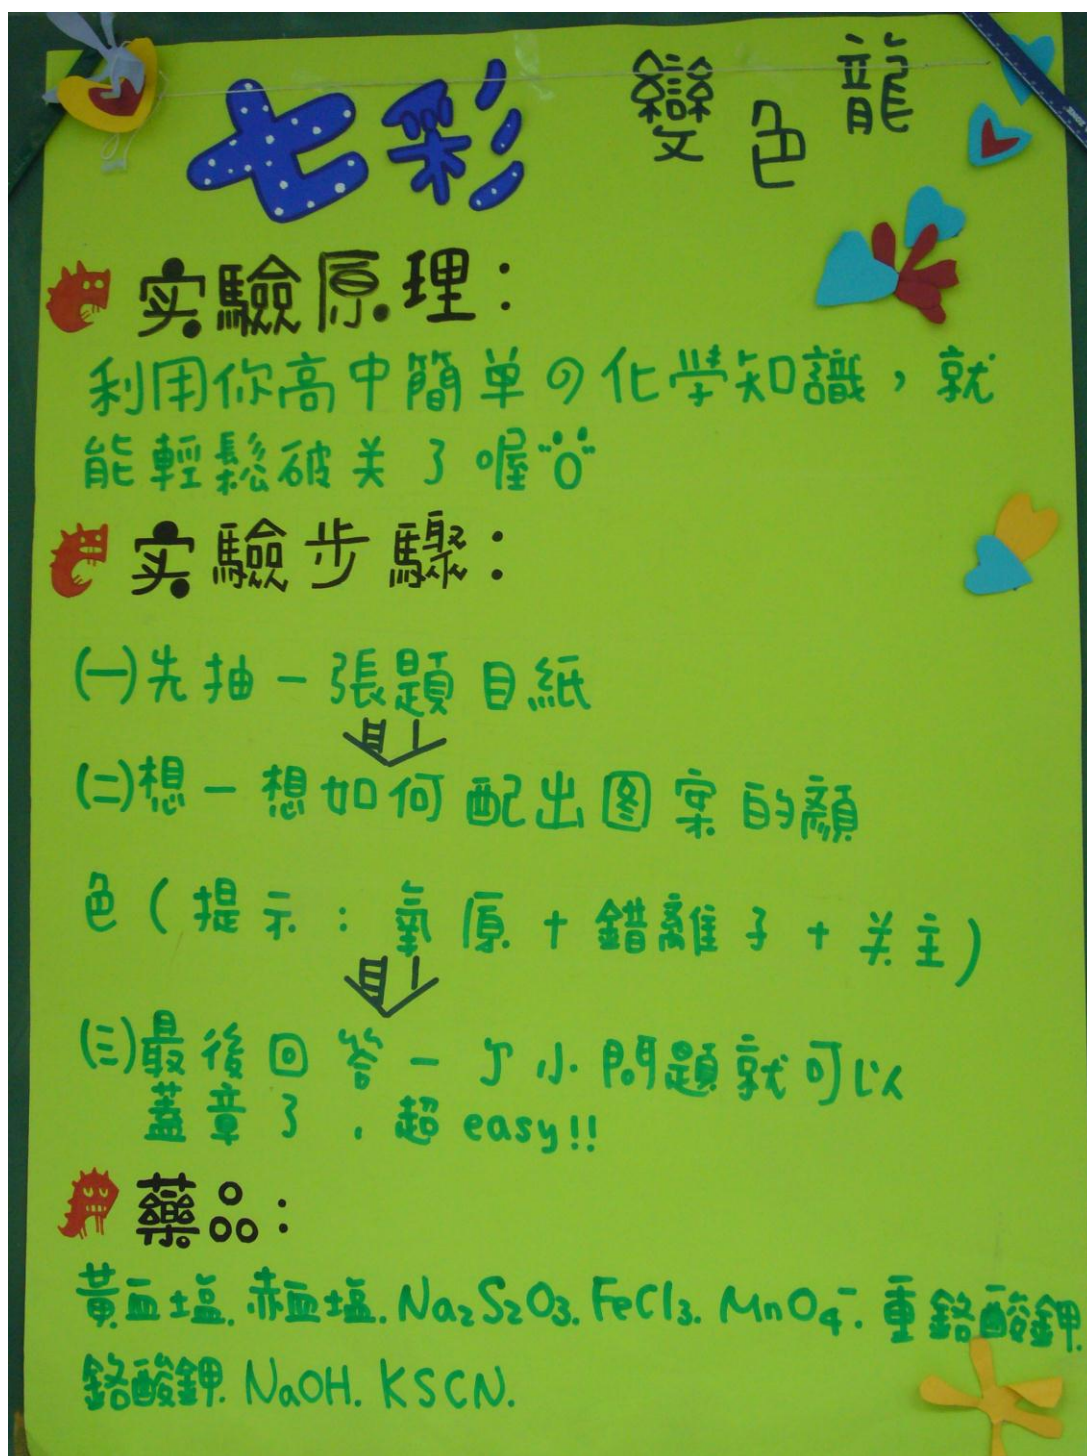 七彩變色龍
实驗原理：
利用你高中簡单の化學知識，就
能輕鬆破关了喔
实驗步驟：
(一)先抽一張題目紙
(二)想一想如何配出图案的顏
色(提示：氧原+錯離子+关主)
(三)最後回答一个小問題就可以
蓋章了，超easy!!
藥品：
黃血塩.赤血塩.Na₂S₂O₃.FeCl₃.MnO₄⁻.重鉻酸鉀.
鉻酸鉀.NaOH.KSCN.